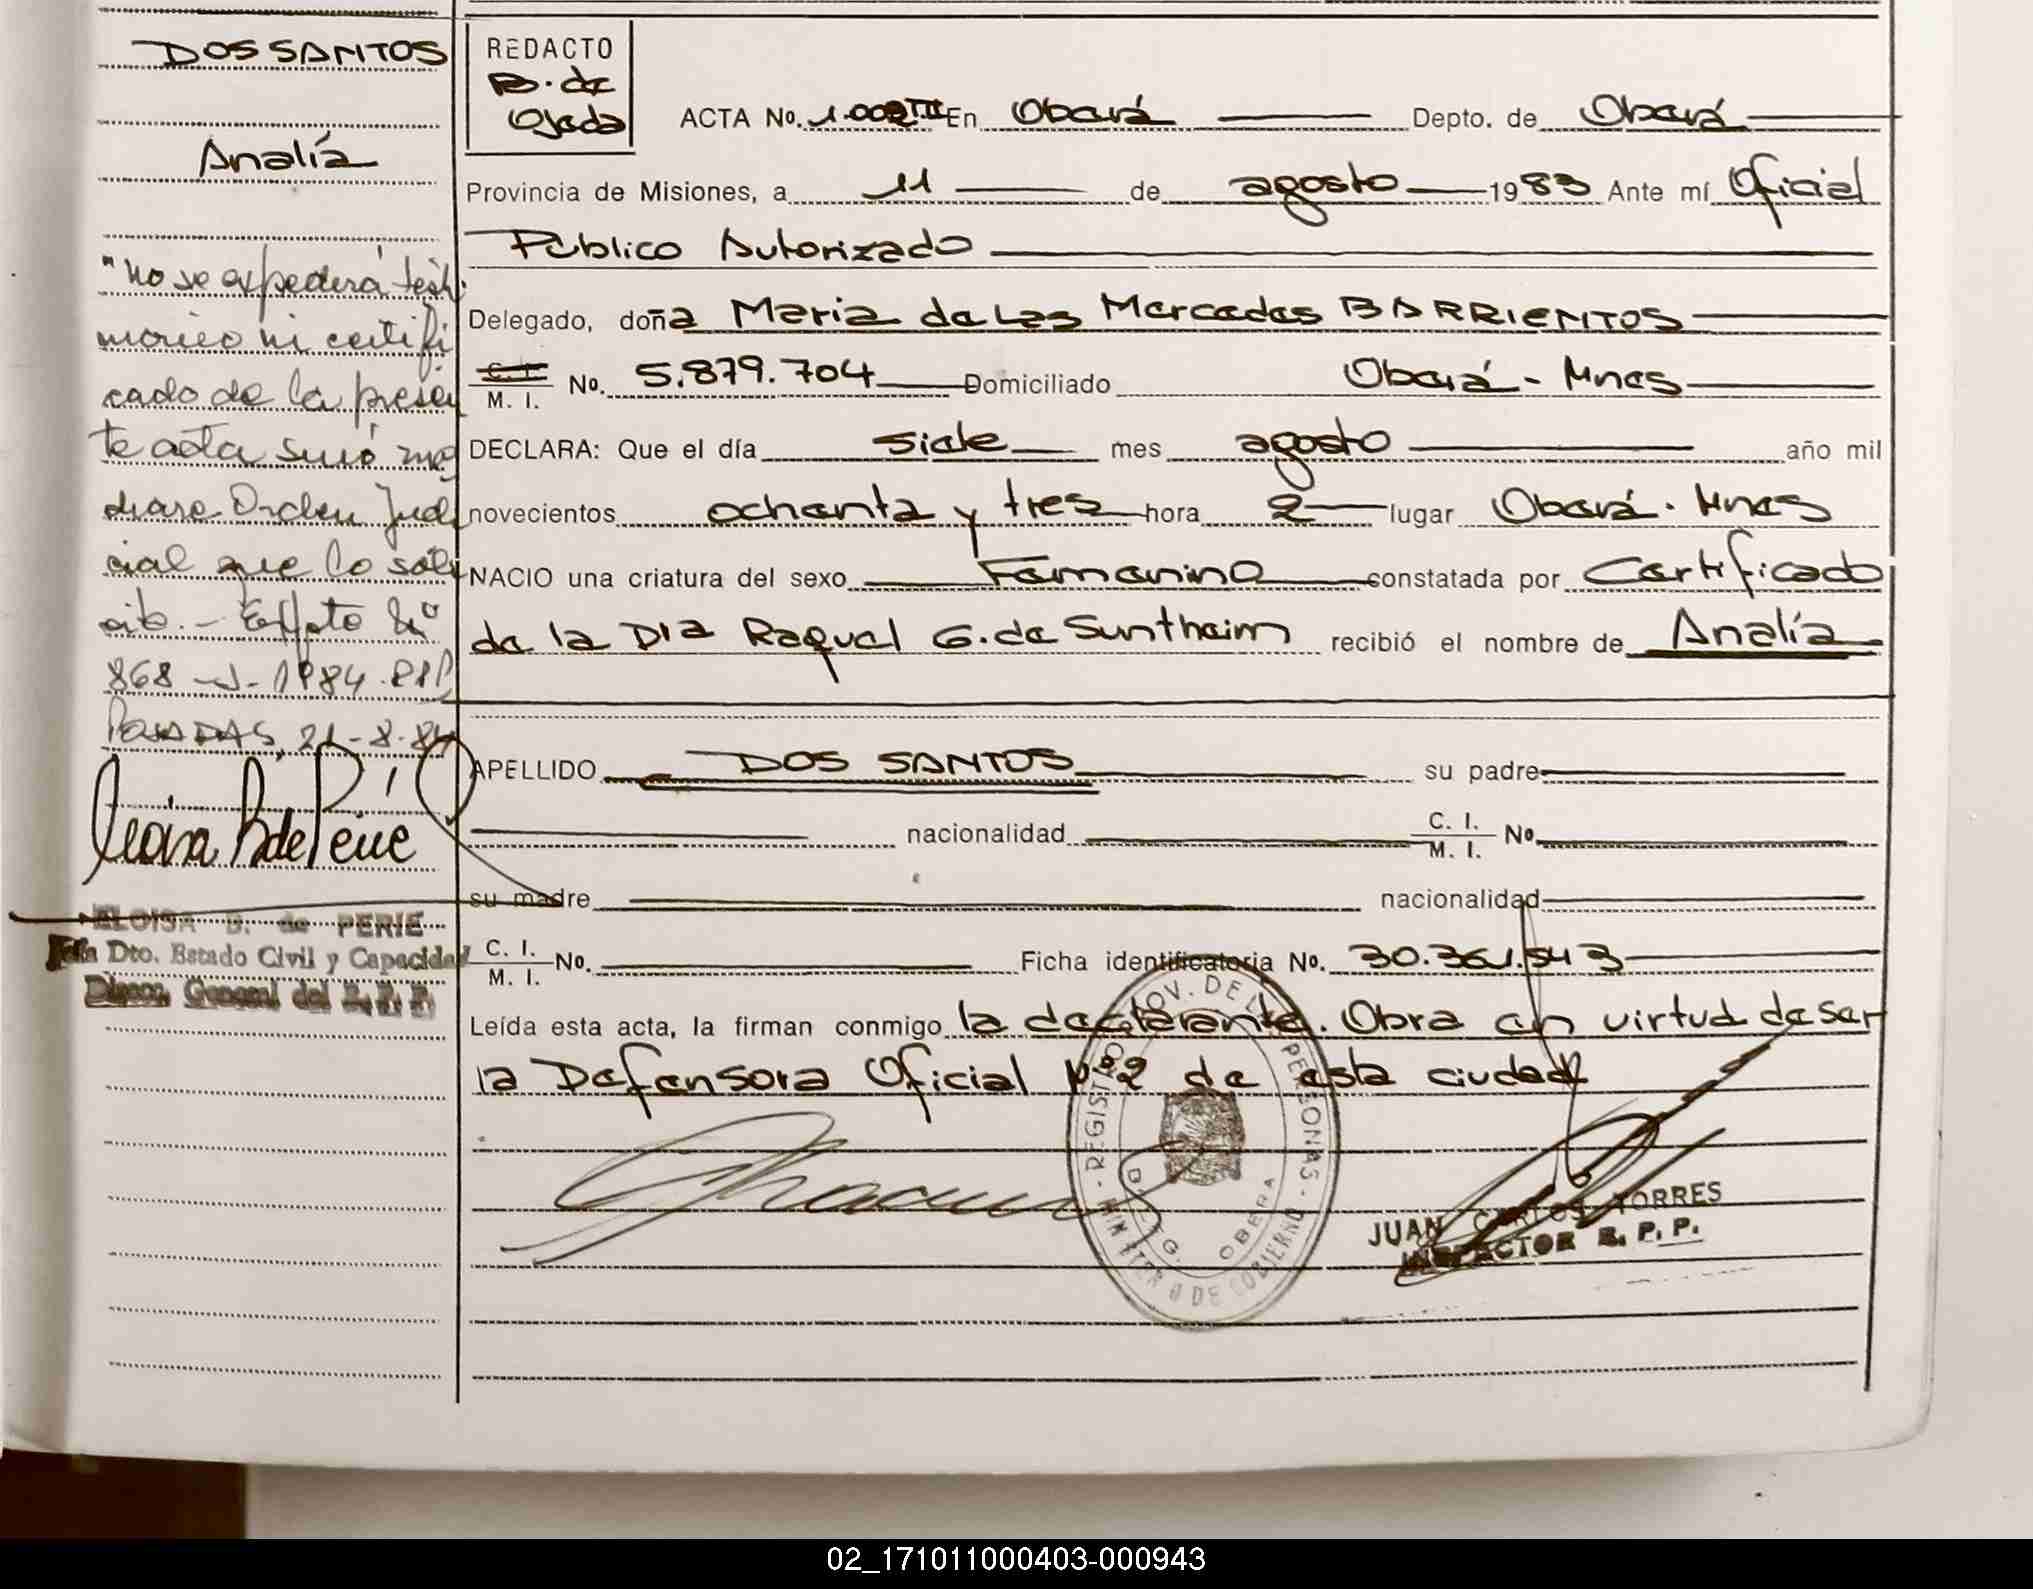 DOS SANTOS
Analía
"No se expederá testi
monio ni certifi
cado de la presen
te acta sinó me
diare Orden Judi
cial que lo soli
cite. - Expte Nº
868 - J - 1984.
POSADAS, 21-8-84
ELOISA B. de PERIE
Jefa Dto. Estado Civil y Capacidad
Direcc. General del R. P. P.
REDACTO
B. de
Ojeda
ACTA No. 1.002 III En Oberá Depto. de Oberá
Provincia de Misiones, a 11 de agosto 1983 Ante mí Oficial
Público Autorizado
Delegado, doña Maria de Las Mercedes BARRIENTOS
C. I.
M. I. No. 5.879.704 Domiciliado Oberá - Mnes
DECLARA: Que el día siete mes agosto año mil
novecientos ochenta y tres hora 2 lugar Oberá - Mnes
NACIO una criatura del sexo Femenino constatada por Certificado
de la Dra Raquel G. de Suntheim recibió el nombre de Analía
APELLIDO DOS SANTOS su padre
nacionalidad C. I. No
M. I.
su madre nacionalidad
C. I.
M. I. No. Ficha identificatoria No. 30.361.543
Leída esta acta, la firman conmigo la declarante. Obra en virtud de ser
la Defensora Oficial Nº 2 de esta ciudad
REGISTRO PROV. DE LAS PERSONAS - MINISTERIO DE GOBIERNO
DELEG. OBERA
JUAN CARLOS TORRES
INSPECTOR R. P. P.
02_171011000403-000943